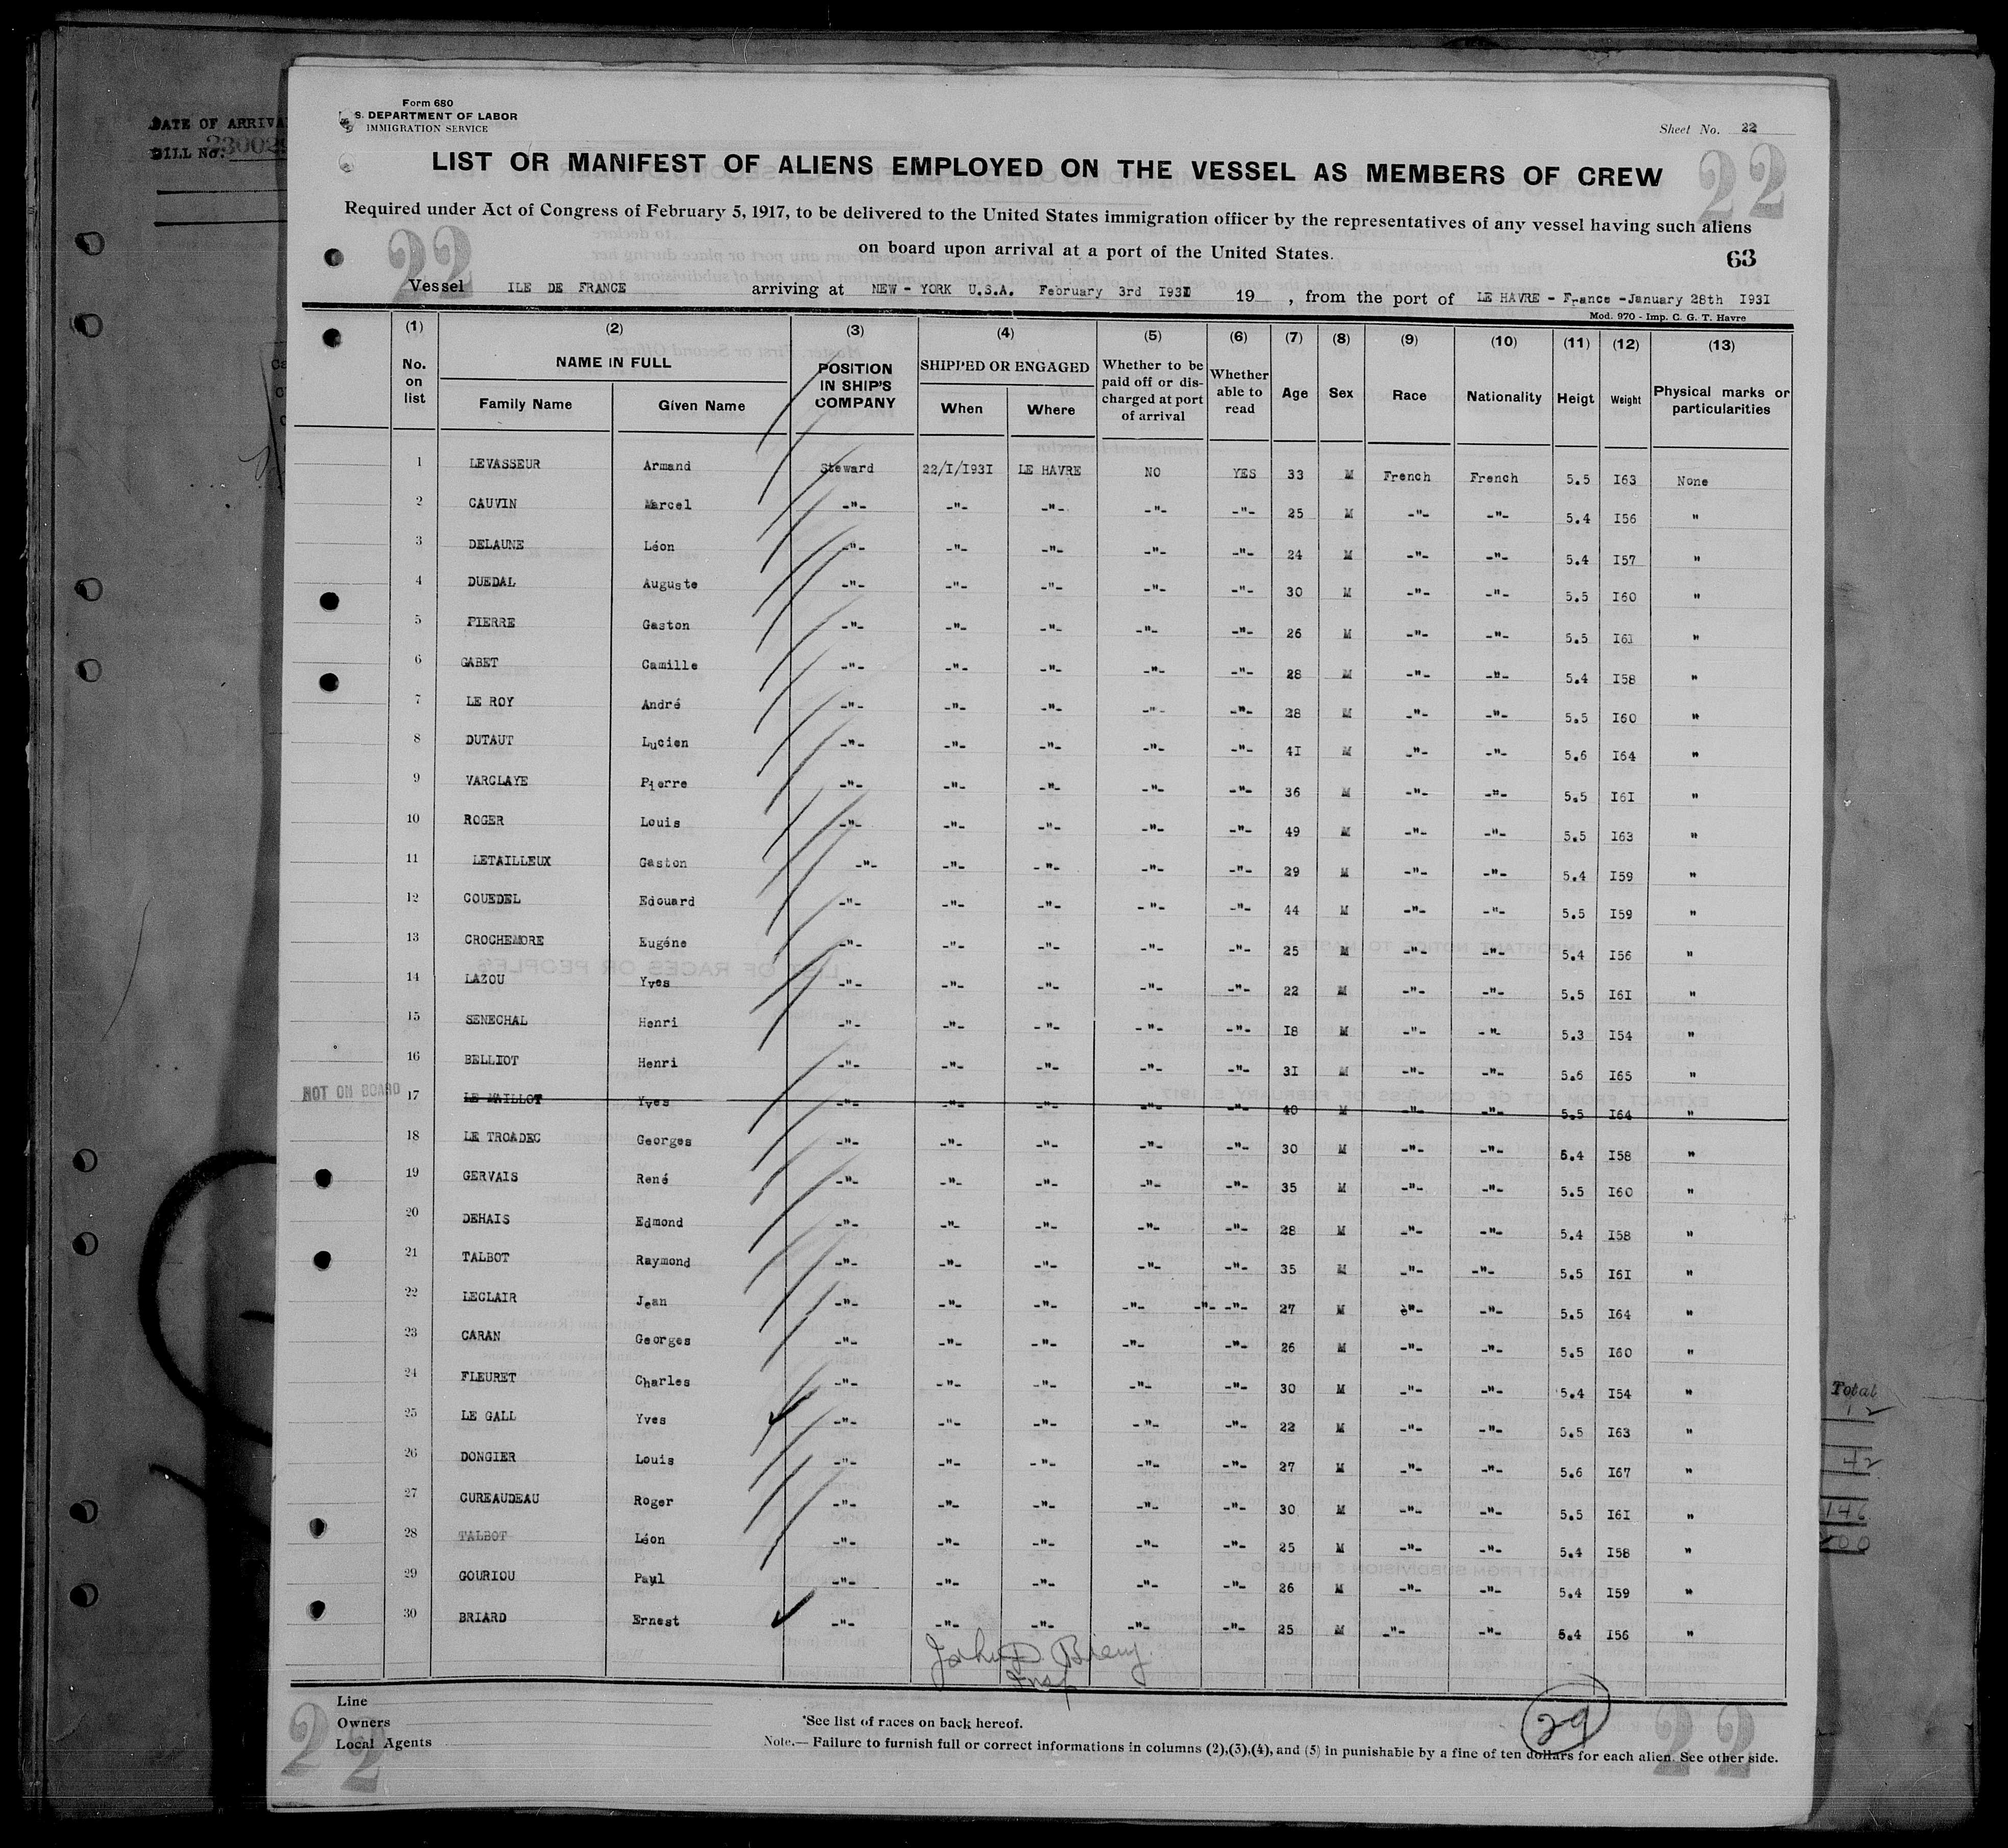 DATE OF ARRIVA
BILL No. 230029
Form 680
S. DEPARTMENT OF LABOR
IMMIGRATION SERVICE
Sheet No. 22
LIST OR MANIFEST OF ALIENS EMPLOYED ON THE VESSEL AS MEMBERS OF CREW
22
Required under Act of Congress of February 5, 1917, to be delivered to the United States immigration officer by the representatives of any vessel having such aliens
on board upon arrival at a port of the United States.
22
63
Vessel ILE DE FRANCE arriving at NEW - YORK U.S.A. February 3rd I93I 19 , from the port of LE HAVRE - France -January 28th I93I
Mod. 970 - Imp. C. G. T. Havre
(1) (2) (3) (4) (5) (6) (7) (8) (9) (10) (11) (12) (13)
No. on list NAME IN FULL Family Name Given Name POSITION IN SHIP'S COMPANY SHIPPED OR ENGAGED When Where Whether to be paid off or discharged at port of arrival Whether able to read Age Sex Race Nationality Heigt Weight Physical marks or particularities
1 LEVASSEUR Armand Steward 22/I/I93I LE HAVRE NO YES 33 M French French 5.5 I63 None
2 CAUVIN Marcel -"- -"- -"- -"- -"- 25 M -"- -"- 5.4 I56 "
3 DELAUNE Léon -"- -"- -"- -"- -"- 24 M -"- -"- 5.4 I57 "
4 DUEDAL Auguste -"- -"- -"- -"- -"- 30 M -"- -"- 5.5 I60 "
5 PIERRE Gaston -"- -"- -"- -"- -"- 26 M -"- -"- 5.5 I6I "
6 GABET Camille -"- -"- -"- -"- -"- 28 M -"- -"- 5.4 I58 "
7 LE ROY André -"- -"- -"- -"- -"- 28 M -"- -"- 5.5 I60 "
8 DUTAUT Lucien -"- -"- -"- -"- -"- 4I M -"- -"- 5.6 I64 "
9 VARCLAYE Pierre -"- -"- -"- -"- -"- 36 M -"- -"- 5.5 I6I "
10 ROGER Louis -"- -"- -"- -"- -"- 49 M -"- -"- 5.5 I63 "
11 LETAILLEUX Gaston -"- -"- -"- -"- -"- 29 M -"- -"- 5.4 I59 "
12 COUEDEL Edouard -"- -"- -"- -"- -"- 44 M -"- -"- 5.5 I59 "
13 CROCHEMORE Eugéne -"- -"- -"- -"- -"- 25 M -"- -"- 5.4 I56 "
14 LAZOU Yves -"- -"- -"- -"- -"- 22 M -"- -"- 5.5 I6I "
15 SENECHAL Henri -"- -"- -"- -"- -"- I8 M -"- -"- 5.3 I54 "
16 BELLIOT Henri -"- -"- -"- -"- -"- 3I M -"- -"- 5.6 I65 "
NOT ON BOARD 17 LE MAILLOT Yves -"- -"- -"- -"- -"- 40 M -"- -"- 5.5 I64 "
18 LE TROADEC Georges -"- -"- -"- -"- -"- 30 M -"- -"- 5.4 I58 "
19 GERVAIS René -"- -"- -"- -"- -"- 35 M -"- -"- 5.5 I60 "
20 DEHAIS Edmond -"- -"- -"- -"- -"- 28 M -"- -"- 5.4 I58 "
21 TALBOT Raymond -"- -"- -"- -"- -"- 35 M -"- -"- 5.5 I6I "
22 LECLAIR Jean -"- -"- -"- -"- -"- -"- 27 M -"- -"- 5.5 I64 "
23 CARAN Georges -"- -"- -"- -"- -"- 26 M -"- -"- 5.5 I60 "
24 FLEURET Charles -"- -"- -"- -"- -"- 30 M -"- -"- 5.4 I54 "
25 LE GALL Yves -"- -"- -"- -"- -"- 22 M -"- -"- 5.5 I63 "
26 DONGIER Louis -"- -"- -"- -"- -"- 27 M -"- -"- 5.6 I67 "
27 CUREAUDEAU Roger -"- -"- -"- -"- -"- 30 M -"- -"- 5.5 I6I "
28 TALBOT Léon -"- -"- -"- -"- -"- 25 M -"- -"- 5.4 I58 "
29 GOURIOU Paul -"- -"- -"- -"- -"- 26 M -"- -"- 5.4 I59 "
30 BRIARD Ernest -"- -"- -"- -"- -"- 25 M -"- -"- 5.4 I56 "
John D.
Insp
Line
Owners
Local Agents
*See list of races on back hereof.
Note.— Failure to furnish full or correct informations in columns (2),(3),(4), and (5) in punishable by a fine of ten dollars for each alien. See other side.
29
22
22
Total
42
146